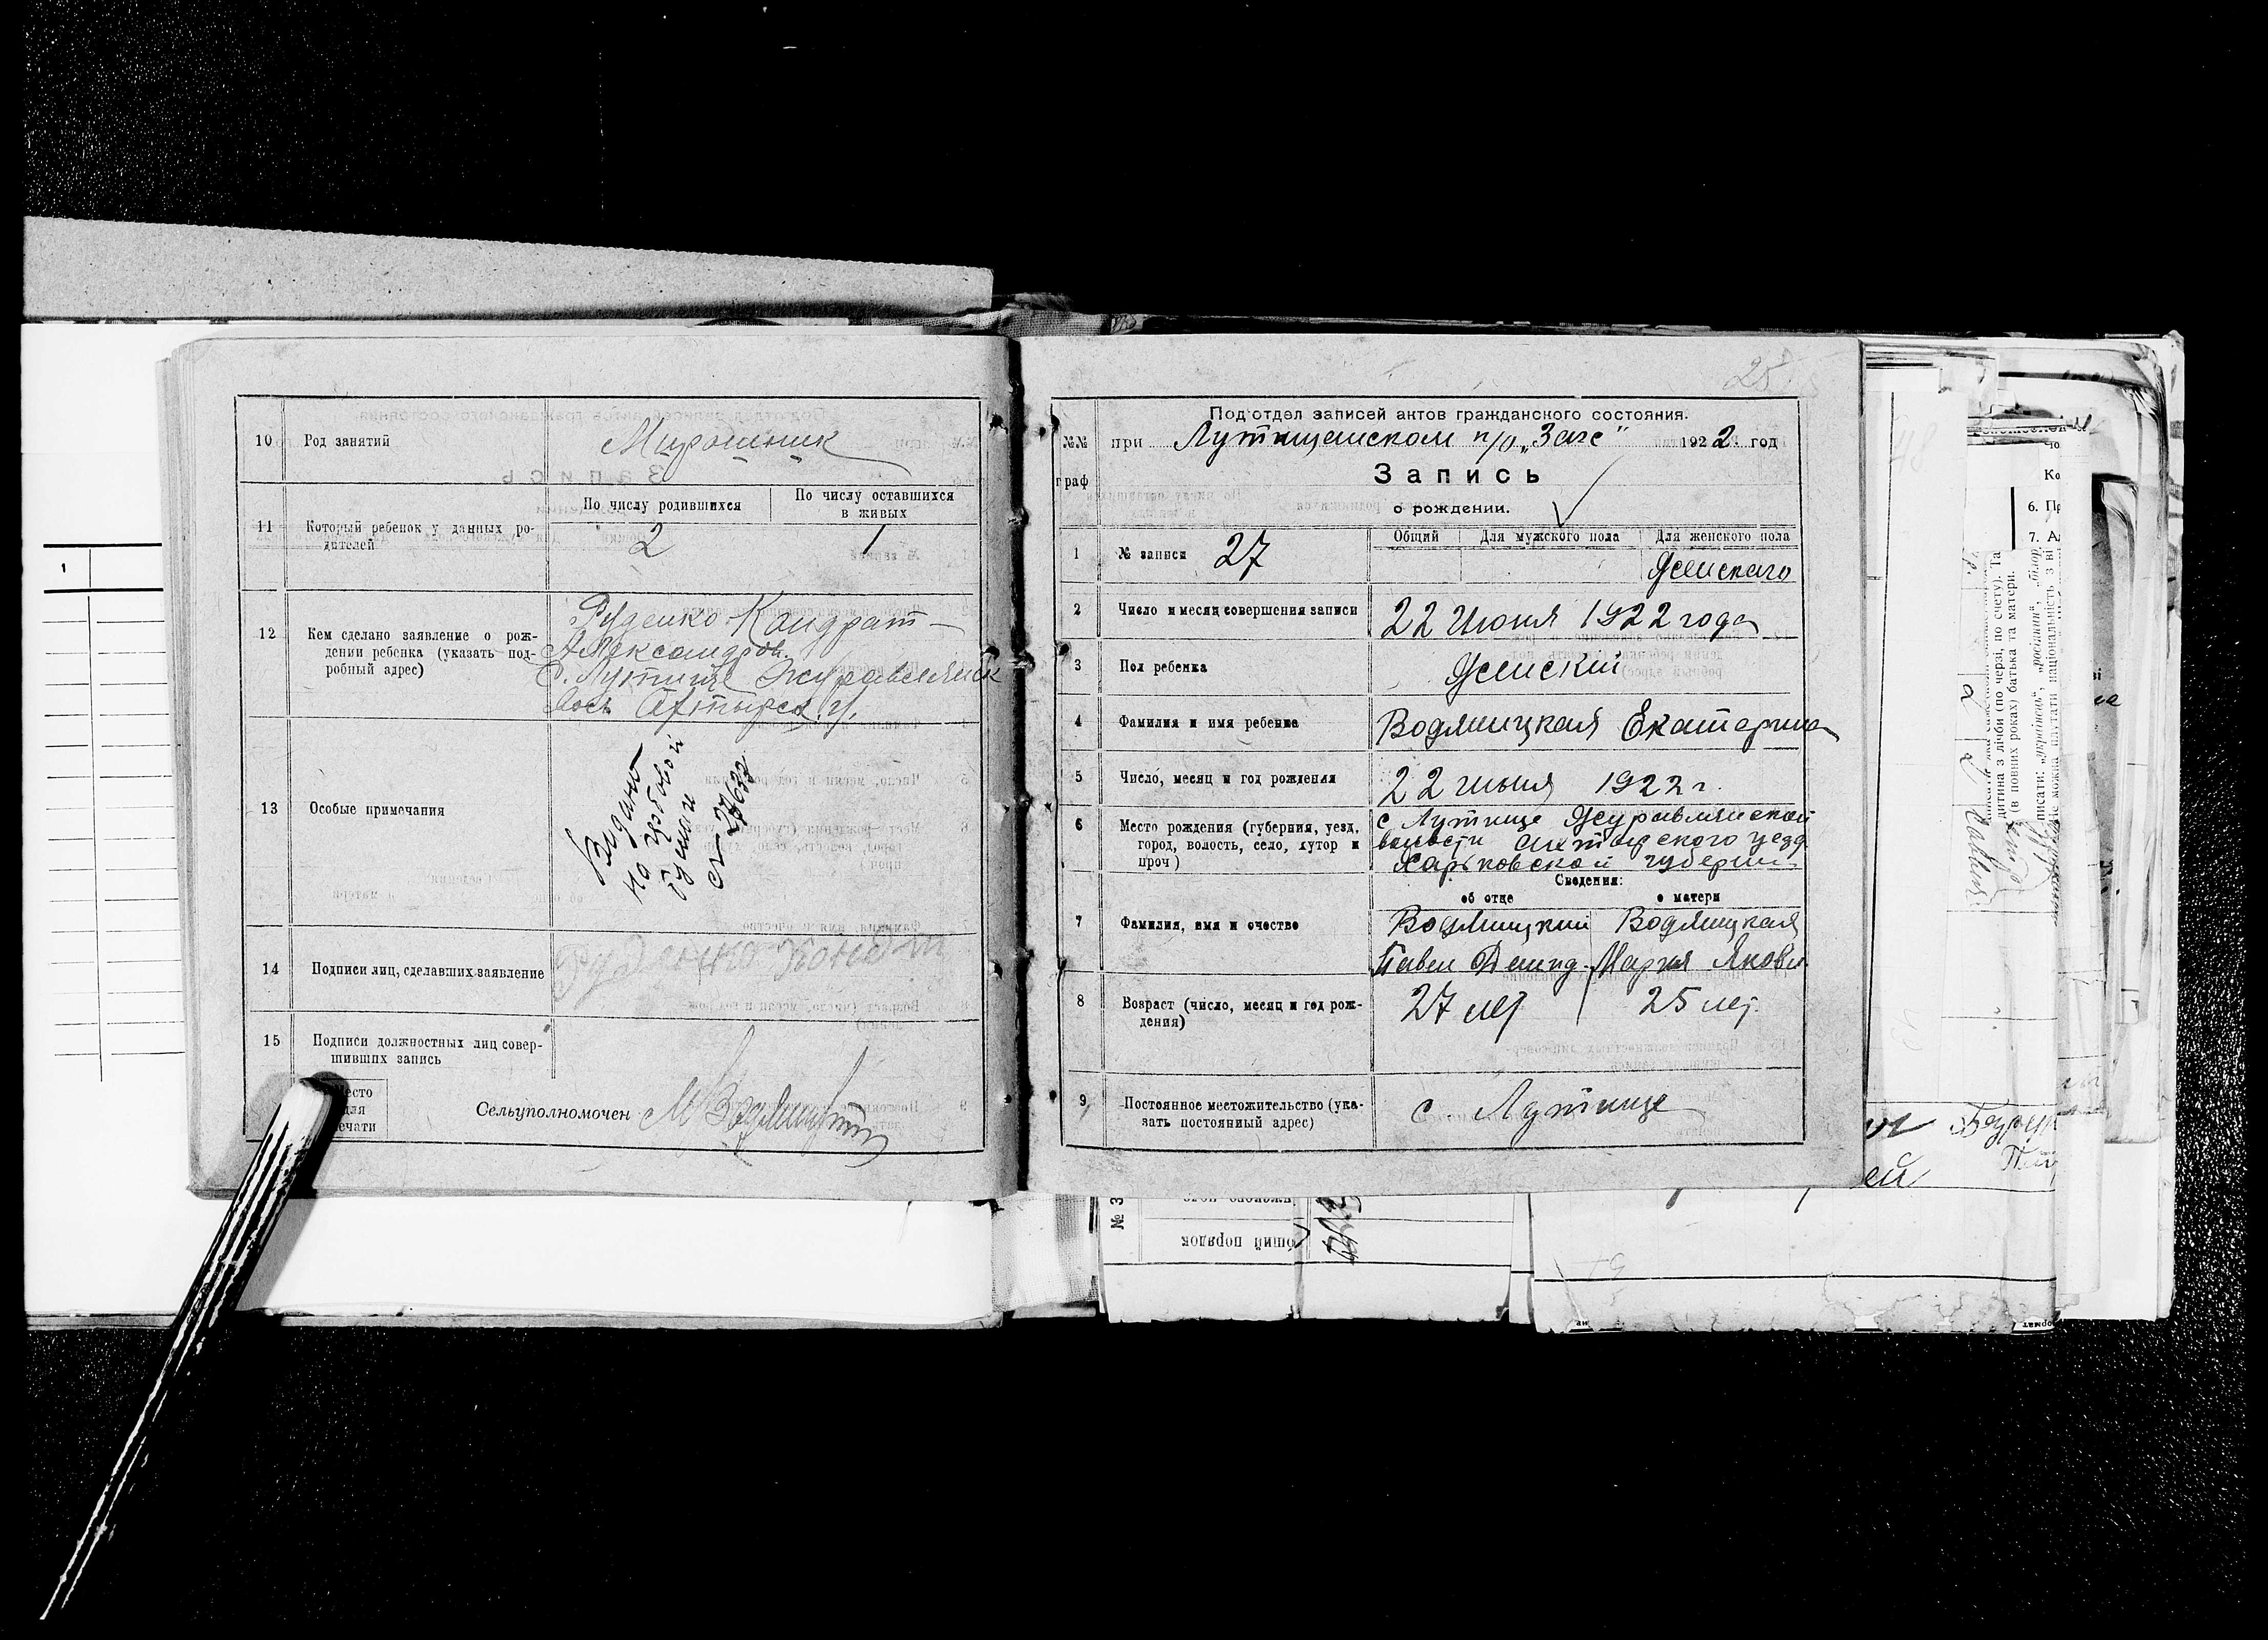 10 Род занятий Мирошник
По числу родившихся
По числу оставшихся
в живых
11 Который ребенок у данных ро-
дителей
2 1
12 Кем сделано заявление о рож-
дении ребенка (указать под-
робный адрес)
Руденко Кондрат
Александров.
с. Лутище Журавлянск
Ахтырск. у.
13 Особые примечания
Видано
на гербовой
бумаге
№
14 Подписи лиц, сделавших заявление
Руденко Кондрат
15 Подписи должностных лиц совер-
шивших запись
Место
для
печати
Сельуполномочен
25
Подотдел записей актов гражданского состояния.
№№ граф
при Лутищанском п/о „Загс" 1922 год
Запись
о рождении.
1 № записи 27
Общий Для мужского пола Для женского пола
Женскаго
2 Число и месяц совершения записи 22 Июня 1922 года
3 Пол ребенка Женский
4 Фамилия и имя ребенка Водяницкая Екатерина
5 Число, месяц и год рождения 22 июня 1922 г.
6 Место рождения (губерния, уезд,
город, волость, село, хутор и
проч)
с Лутище Журавлянской
волости уезда
Харьковской губернии
Сведения:
об отце о матери
7 Фамилия, имя и очество
Водяницкий Водяницкая
Павел Мария Яковл
8 Возраст (число, месяц и год рож-
дения)
27 лет 25 лет
9 Постоянное местожительство (ука-
зать постоянный адрес)
с. Лутище
1
6.
7.
дитина з лічби (по черзі, по счету). Та
(в повних роках) батька та матери.
№ 3
порядок